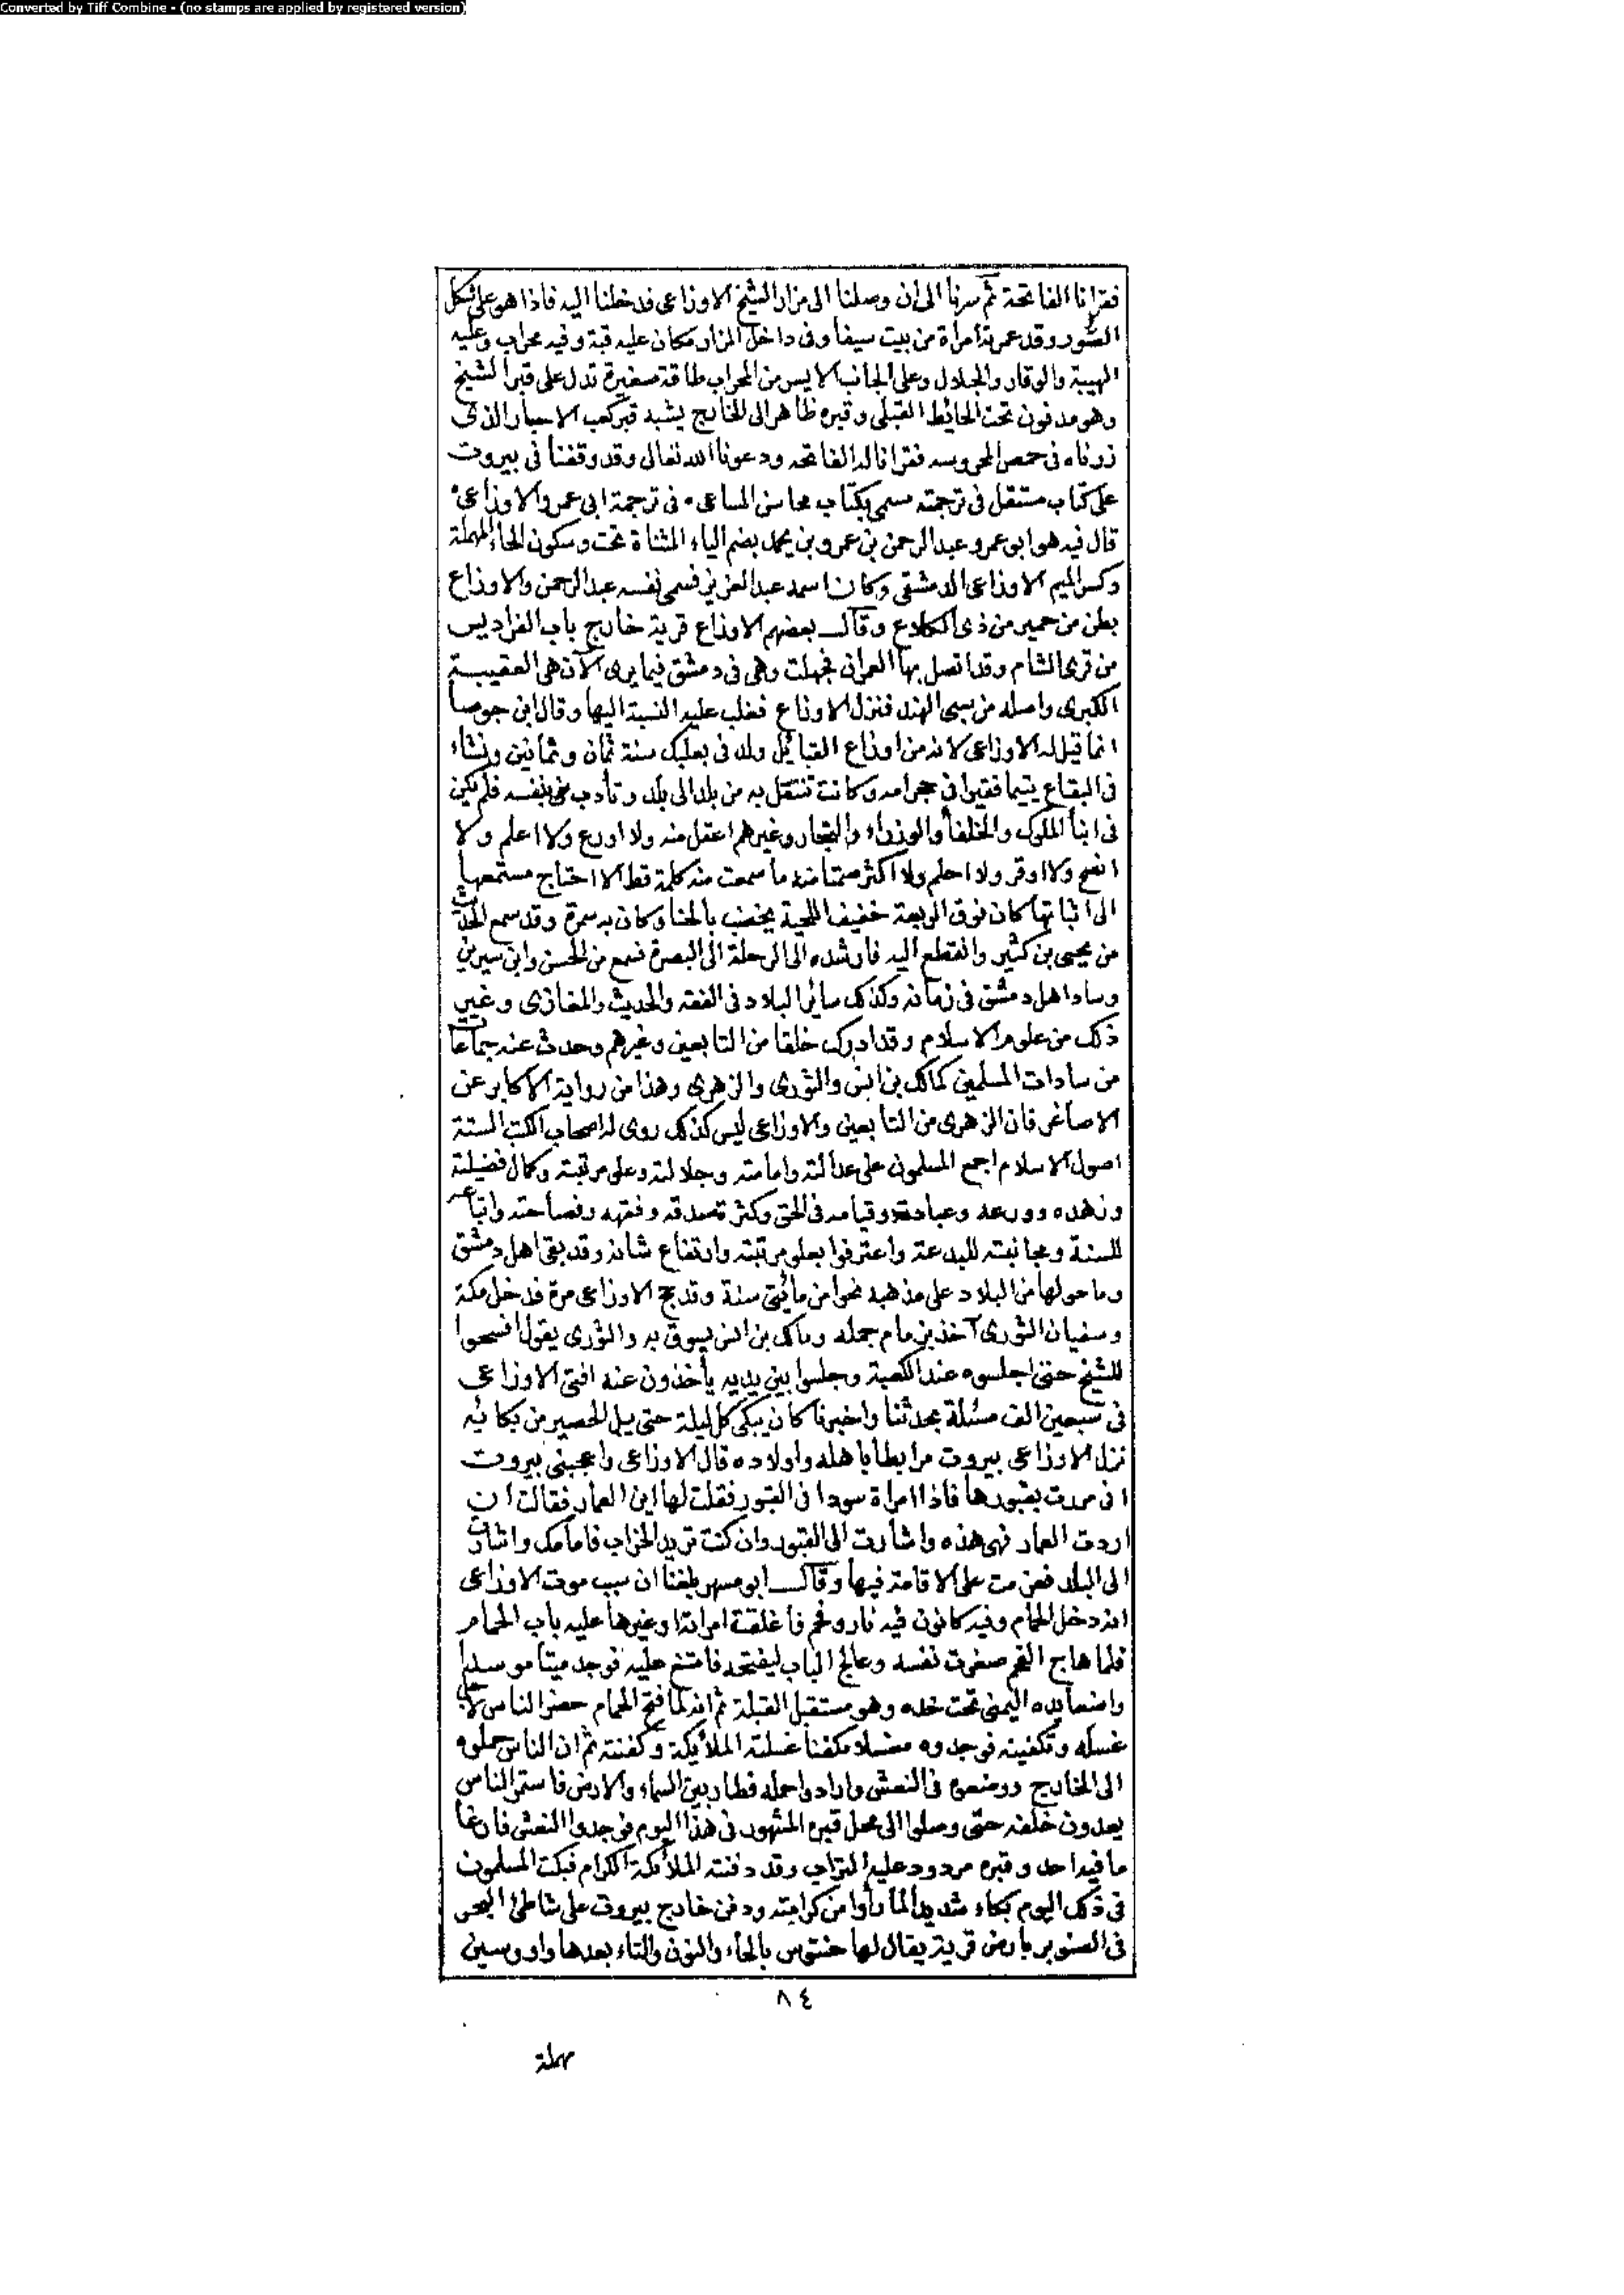 Converted by Tiff Combine - (no stamps are applied by registered version)
فقرانا الفاتحة ثم سرنا الى ان وصلنا الى مزار الشيخ الاوزاعى فدخلنا اليه فاذا هو على شكل
السور وقد عمرته امراة من بيت سيفا وفى داخل المزار مكان عليه قبة وفيه محراب وعليه
الهيبة والوقار والجلال وعلى الجانب الايسر من المحراب طاقة صغيرة تدل على قبر الشيخ
وهو مدفون تحت الحائط القبلى وقبره ظاهر الى الخارج يشبه قبر كعب الاحبار الذى
زرناه فى حمص المحروسه فقرانا له الفاتحه ودعونا الله تعالى وقد وقفنا فى بيروت
على كتاب مستقل فى ترجمته مسمى بكتاب محاسن المساعى • فى ترجمة ابى عمرو الاوزاعى •
قال فيه هو ابو عمرو عبد الرحمن بن عمرو بن يحمد بضم الياء المثناة تحت وسكون الحاء المهملة
وكسر الميم الاوزاعى الدمشقى وكان اسمه عبد العزيز فسمى نفسه عبد الرحمن والاوزاع
بطن من حمير من ذى الكلاع وقال بعضهم الاوزاع قرية خارج باب الفراديس
من قرى الشام وقد اتصل بها العمران فجهلت وهى فى دمشق فيما يرى الآن هى العقيبة
الكبرى واصله من سبى الهند فنزل الاوزاع فغلب عليه النسبة اليها وقال ابن جوصا
انما قيل له الاوزاعى لانه من اوزاع القبائل ولد فى بعلبك سنة ثمان وثمانين ونشاء
فى البقاع يتيما فقيرا فى حجر امه وكانت تنتقل به من بلد الى بلد وتأدب بنفسه فلم يكن
فى ابنأ الملوك والخلفأ والوزراء والتجار وغيرهم اعقل منه ولا اورع ولا اعلم ولا
افصح ولا اوقر ولا احلم ولا اكثر صمتا منه ما سمعت منه كلمة قط الا احتاج مستمعها
الى اثباتها كان فوق الربعة خفيف اللحية يخضب بالحنا وكان به سمرة وقد سمع الحديث
من يحيى بن كثير وانقطع اليه فارشده الى الرحلة الى البصرة فسمع من الحسن وابن سيرين
وساد اهل دمشق فى زمانه وكذلك سائر البلاد فى الفقه والحديث والمغازى وغير
ذلك من علوم الاسلام وقد ادرك خلقا من التابعين وغيرهم وحدث عنه جماعات
من سادات المسلمين كمالك بن انس والثورى والزهرى وهذا من رواية الاكابر عن
الاصاغر فان الزهرى من التابعين والاوزاعى ليس كذلك روى له اصحاب الكتب الستة
اصول الاسلام اجمع المسلمون على عدالته وامامته وجلالته وعلو مرتبته وكمال فضيلته
وزهده وورعه وعبادته وقيامه فى الحق وكثر تصدقه وفقهه وفصاحته واتباعه
للسنة ومجانبته للبدعة واعترفوا بعلو مرتبته وارتفاع شانه وقد بقى اهل دمشق
وما حولها من البلاد على مذهبه نحوا من مائتى سنة وقد حج الاوزاعى مرة فدخل مكة
وسفيان الثورى آخذ بزمام جمله ومالك بن انس يسوق به والثورى يقول افسحوا
للشيخ حتى اجلسوه عند الكعبة وجلسوا بين يديه يأخذون عنه افتى الاوزاعى
فى سبعين الف مسئلة بحدثنا واخبرنا كان يبكى كل ليلة حتى يبل الحصير من بكائه
نزل الاوزاعى بيروت مرابطا باهله واولاده قال الاوزاعى واعجبنى بيروت
انى مررت بقبورها فاذا امراة سودا فى القبور فقلت لها اين العمار فقالت ان
اردت العمار فهى هذه واشارت الى القبور وان كنت تريد الخراب فامامك واشارت
الى البلد فعزمت على الاقامة فيها وقال ابو مسهر بلغنا ان سبب موت الاوزاعى
انه دخل الحمام وفيه كانون فيه نار وفحم فاغلقت امراته او غيرها عليه باب الحمام
فلما هاج الفحم صغرت نفسه وعالج الباب ليفتحه فامتنع عليه فوجد ميتا موسدا
واضعا يده اليمنى تحت خده وهو مستقبل القبلة ثم انه لما فتح الحمام حضر الناس لاجل
غسله وتكفينه فوجدوه مغسلا مكفنا غسلته الملائكة وكفنته ثم ان الناس حملوه
الى الخارج ووضعوه فى النعش وارادوا حمله فطار بين السماء والارض فاستمر الناس
يعدون خلفه حتى وصلوا الى محل قبره المشهور فى هذا اليوم فوجدوا النعش فارغا
ما فيه احد وقبره مردود عليه التراب وقد دفنته الملائكة الكرام فبكت المسلمون
فى ذلك اليوم بكاء شديدا لما رأوا من كرامته ودفن خارج بيروت على شاطئ البحر
فى الصنوبر بارض قرية يقال لها حنتوس بالحاء والنون والتاء بعدها واو وسين
٨٤
مهملة